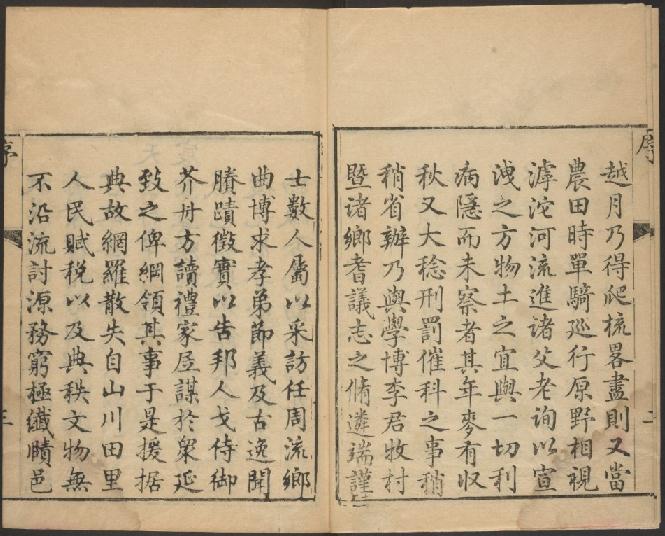 序
二
越月乃得爬梳畧盡則又當
農田時單騎廵行原野相視
滹沱河流進諸父老詢以宣
洩之方物土之宜與一切利
病隱而未察者其年麥有収
秋又大稔刑罰催科之事稍
稍省辦乃與學博李君牧村
暨诸鄉耆議志之脩遴端謹
士數人屬以采訪任周流鄉
曲博求孝弟節義及古逸聞
賸蹟徵實以告邦人戈侍御
芥舟方讀禮家居謀於衆延
致之俾綱領其事于是援据
典故網羅散失自山川田里
人民賦稅以及典秩文物無
不沿流討源務窮極纖賾邑
序
三